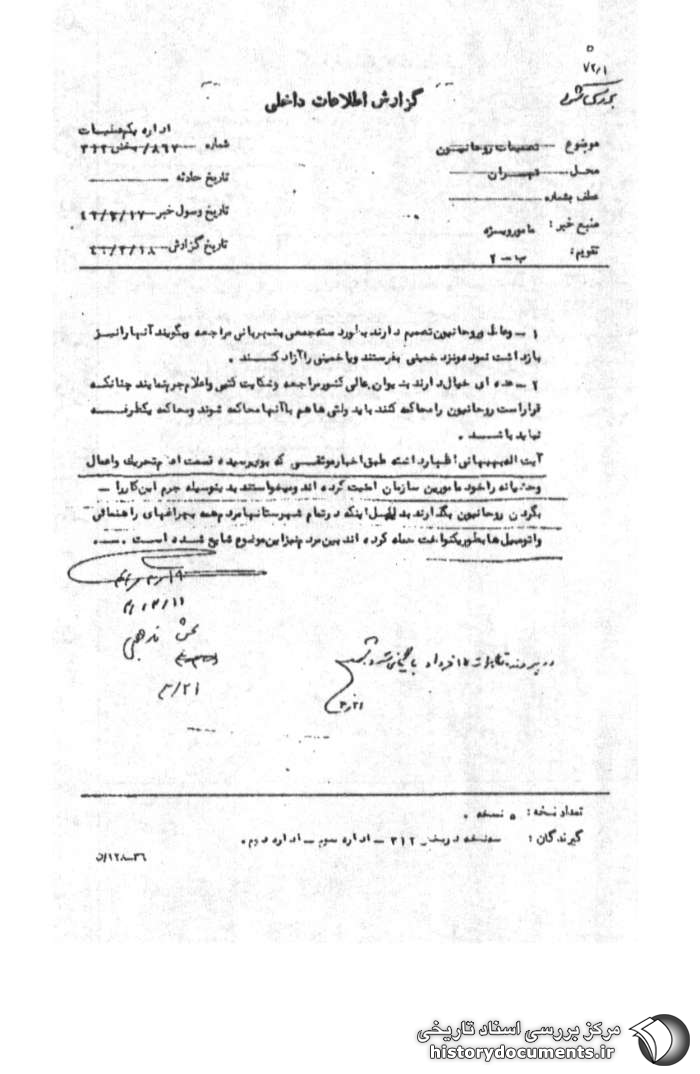 ۷۲/۱
گزارش اطلاعات داخلی
اداره یکم عملیات
موضوع تصمیمات روحانیون
شماره ۸۶۷/بخش ۳۱۲
محل تهران
تاریخ حادثه
عطف بشماره
تاریخ وصول خبر ۴۲/۳/۱۷
منبع خبر: مامور ویژه
تاریخ گزارش ۴۲/۳/۱۸
تقویم: ب-۲
۱ - وعاظ و روحانیون تصمیم دارند بطور دسته جمعی بشهربانی مراجعه وبگویند آنها را نیز
بازداشت نموده ونزد خمینی بفرستند ویا خمینی را آزاد کنند .
۲ - عده ای خیال دارند بدیوان عالی کشور مراجعه وشکایت کتبی واعلام جرم نمایند چنانکه
قرار است روحانیون را محاکمه کنند باید واعظ ها هم با آنها محاکمه شوند ومحاکمه یکطرفه
نباید باشد .
آیت اله بهبهانی اظهار داشته طبق اخبار موثقی که بوی رسیده قسمت اعظم تحریک واعمال
وحشیانه را خود مامورین سازمان امنیت کرده اند ومیخواستند بدینوسیله جرم این کار را
بگردن روحانیون بگذارند بدلیل اینکه در تمام شهرستانها مردم همه بچراغهای راهنمائی
واتومبیل ها بطور یکنواخت حمله کرده اند بین مردم نیز این موضوع شایع شده است .
بخش مذهبی
در پرونده تظاهرات ۱۵ خرداد بایگانی شود
۳/۲۱
۳/۲۱
تعداد نسخه: ۵ نسخه .
گیرندگان: سه نسخه در بخش ۳۱۲ - اداره سوم - اداره دوم .
۳۶-۱۲۸/ن
مرکز بررسی اسناد تاریخی
historydocuments.ir